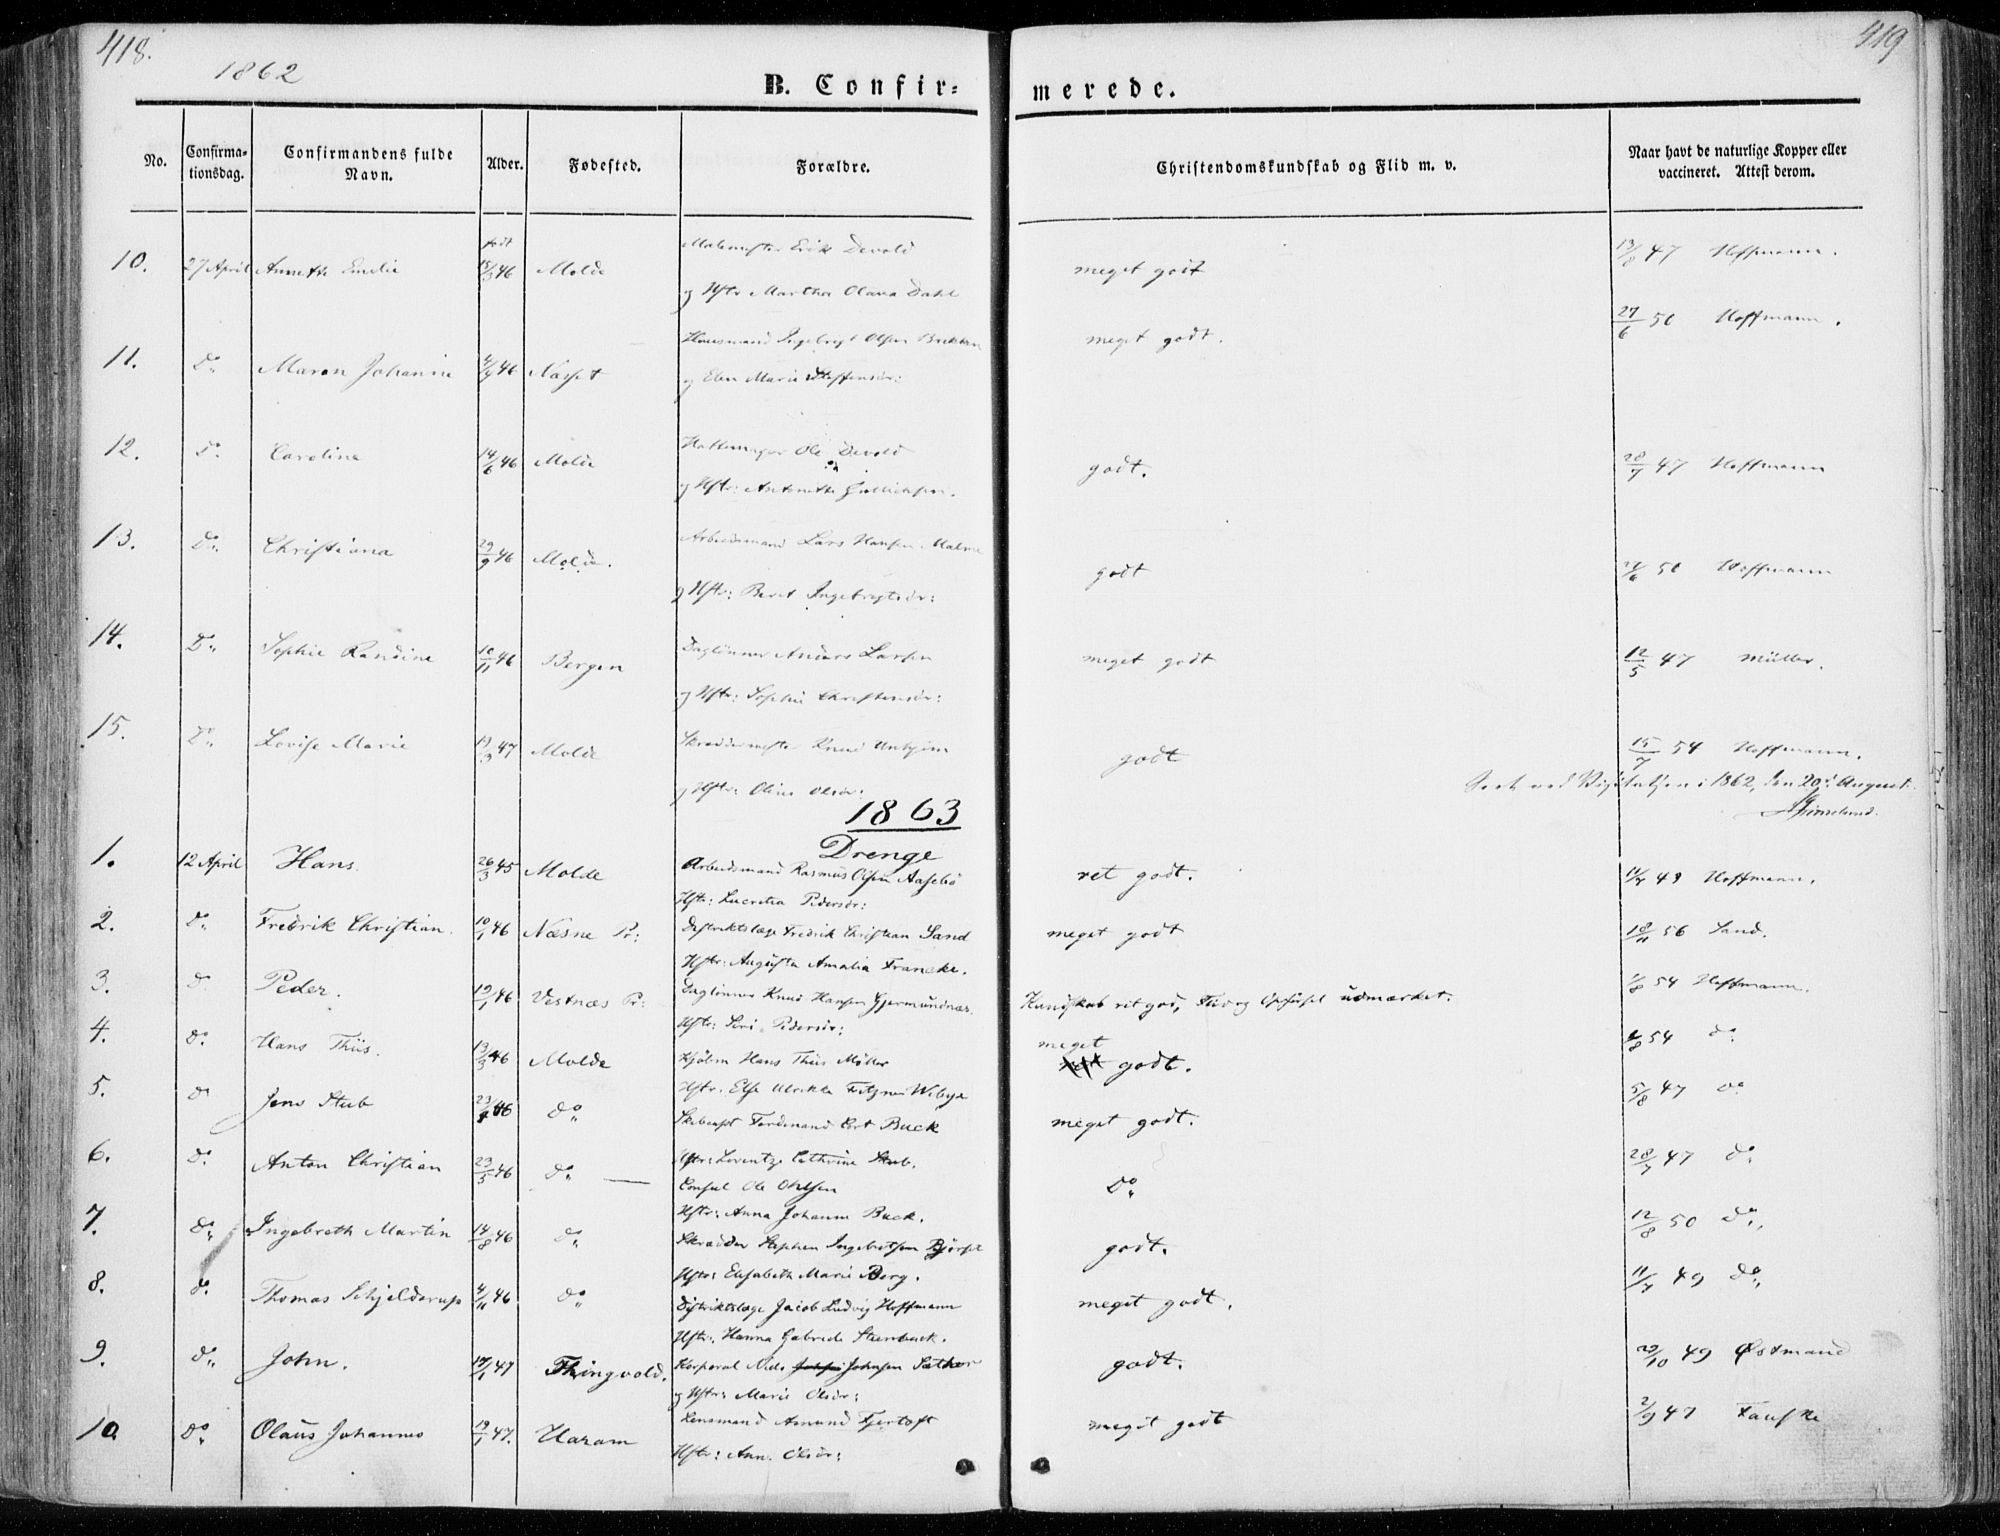 418.
419
1862
B. Confirmerede.
No. Confirmationsdag. Confirmandens fulde Navn. Alder. Fødested. Forældre. Christendomskundskab og Flid m. v. Naar havt de naturlige Kopper eller vaccineret. Attest derom.
født
10. 27 April Annette Emilie 15/3 46 Molde Malemester Erik Devold meget godt 13/8 47 Hoffmann.
og Hstr Martha Olava Dahl
11. Do Maren Johanne 46 Næsset Huusmand Ingebrigt Olsen meget godt. 27/6 50 Hoffmann.
og Elen Marie Steffensdr:
12. Do Caroline 14/6 46 Molde Hattemager Ole Devold godt. 28/7 47 Hoffmann
og Hstr: Antonette
13. Do Christiana 29/9 46 Molde. Arbeidsmand Lars Hansen Malme godt 50 Hoffmann
og Hstr: Beret Ingebrigtsdr:
14. Do Sophie Randine 10/11 46 Bergen Daglønner Anders Larsen meget godt 12/5 47 Müller.
og Hstr: Sophie Christensdr:
15. Do Lovise Marie 19/3 47 Molde Skræddermester Knud godt 15/7 54 Hoffmann.
og Hstr: Oline Olsdr:
Seet ved Visitatsen i 1862, den 20d August.
1863
Drenge
1. 12 April Hans. 26/3 45 Molde Arbeidsmand Rasmus Olsen Aasebø ret godt. 11/7 49 Hoffmann.
Hstr: Lucretia Pedersdr:
2. Do Fredrik Christian. 10/1 46 Næsne Pr: Distriktslæge Fredrik Christian Sand meget godt 18/11 56 Sand.
Hstr: Augusta Amalia Francke.
3. Do Peder. 19/1 46 Vestnæs Pr: Daglønner Knud Hansen Gjermundnæs Kundskab ret god, Flid og Opførsel udmærket. 1/8 54 Hoffmann.
Hstr: Siri Pedersdr:
4. Do Hans Thiis. 13/3 46 Molde Kjøbm Hans Thiis Møller meget godt. 54 Do
Hstr. Else Ulrikke Fritzner Wibye
5. Do Jens Stub 23/4 46 Do Skibcapt Ferdinand Cort Buck meget godt. 5/8 47 Do
Hstr: Lorentze Cathrine Stub.
6. Do Anton Christian 23/5 46 Do Consul Ole Ohlsen Do 28/7 47 Do
Hstr: Anna Johanne Buck.
7. Do Ingebreth Martin 14/8 46 Do Skrædder Stephen Ingebretsen godt. 12/8 50 Do
Hstr: Elisabeth Marie Berg.
8. Do Thomas Schjelderup 4/11 46 Do Distriktslæge Jacob Ludvig Hoffmann meget godt. 11/7 49 Do
Hstr. Hanna Gabriele Steenbuck.
9. Do John. 17/1 47 Thingvold. Korporal Nels Johnsen Sather godt. 29/10 49 Østmand
og Hstr: Marie Olsdr:
10 Do Olaus Johannes 19/1 47. Haram Lensmand Amund Fjertoft meget godt 2/9 47 Fauske
Hstr: Ann. Olsdr: